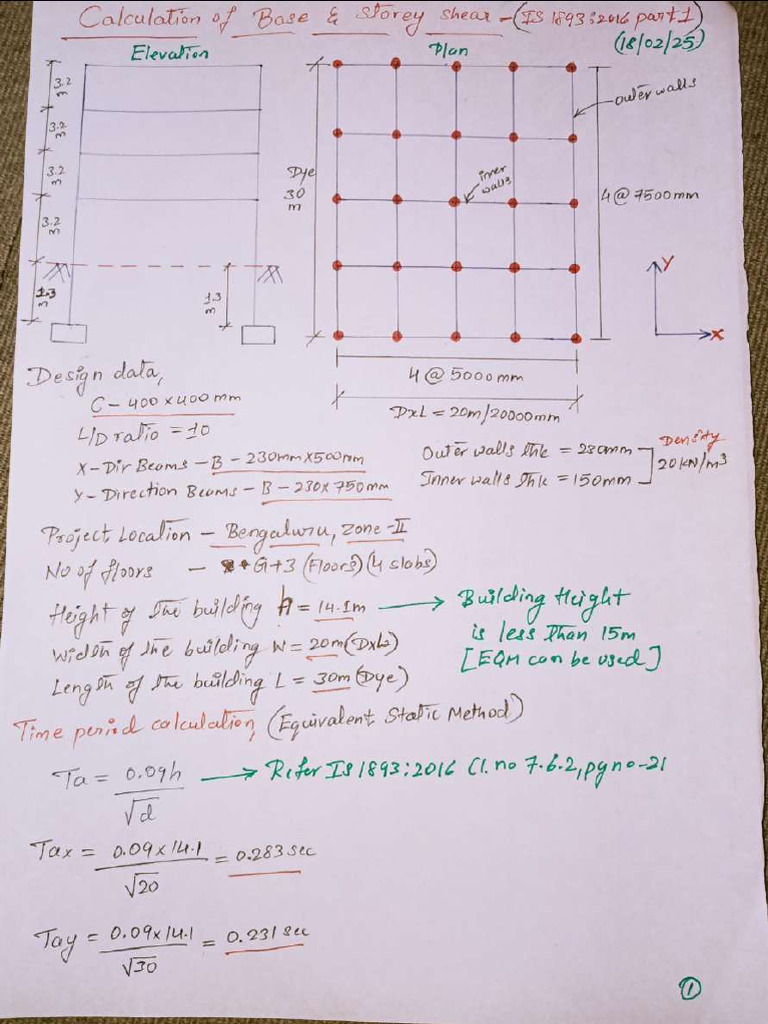 Calculation of Base & Storey shear - (IS 1893:2016 part 1)
(18/02/25)
Elevation
Plan
3.2 m
3.2 m
3.2 m
3.2 m
1.3 m
1.3 m
Dye
30
m
outer walls
inner walls
4 @ 7500 mm
Y
X
4 @ 5000 mm
DxL = 20m/20000mm
Design data,
C - 400 x 400 mm
L/D ratio = 10
X-Dir Beams - B - 230mm x 500mm
Y-Direction Beams - B - 230 x 750 mm
Outer walls thk = 230mm
Inner walls thk = 150mm
Density
20 kN/m³
Project Location - Bengaluru, Zone-II
No of floors - G+3 (Floors) (4 slabs)
Height of the building h = 14.1m → Building Height
is less than 15m
[EQM can be used]
Width of the building W = 20m (DxL)
Length of the building L = 30m (Dye)
Time period calculation, (Equivalent Static Method)
Ta = 0.09h / √d → Refer IS 1893:2016 Cl. no 7.6.2, pg no-21
Tax = 0.09 x 14.1 / √20 = 0.283 sec
Tay = 0.09 x 14.1 / √30 = 0.231 sec
1